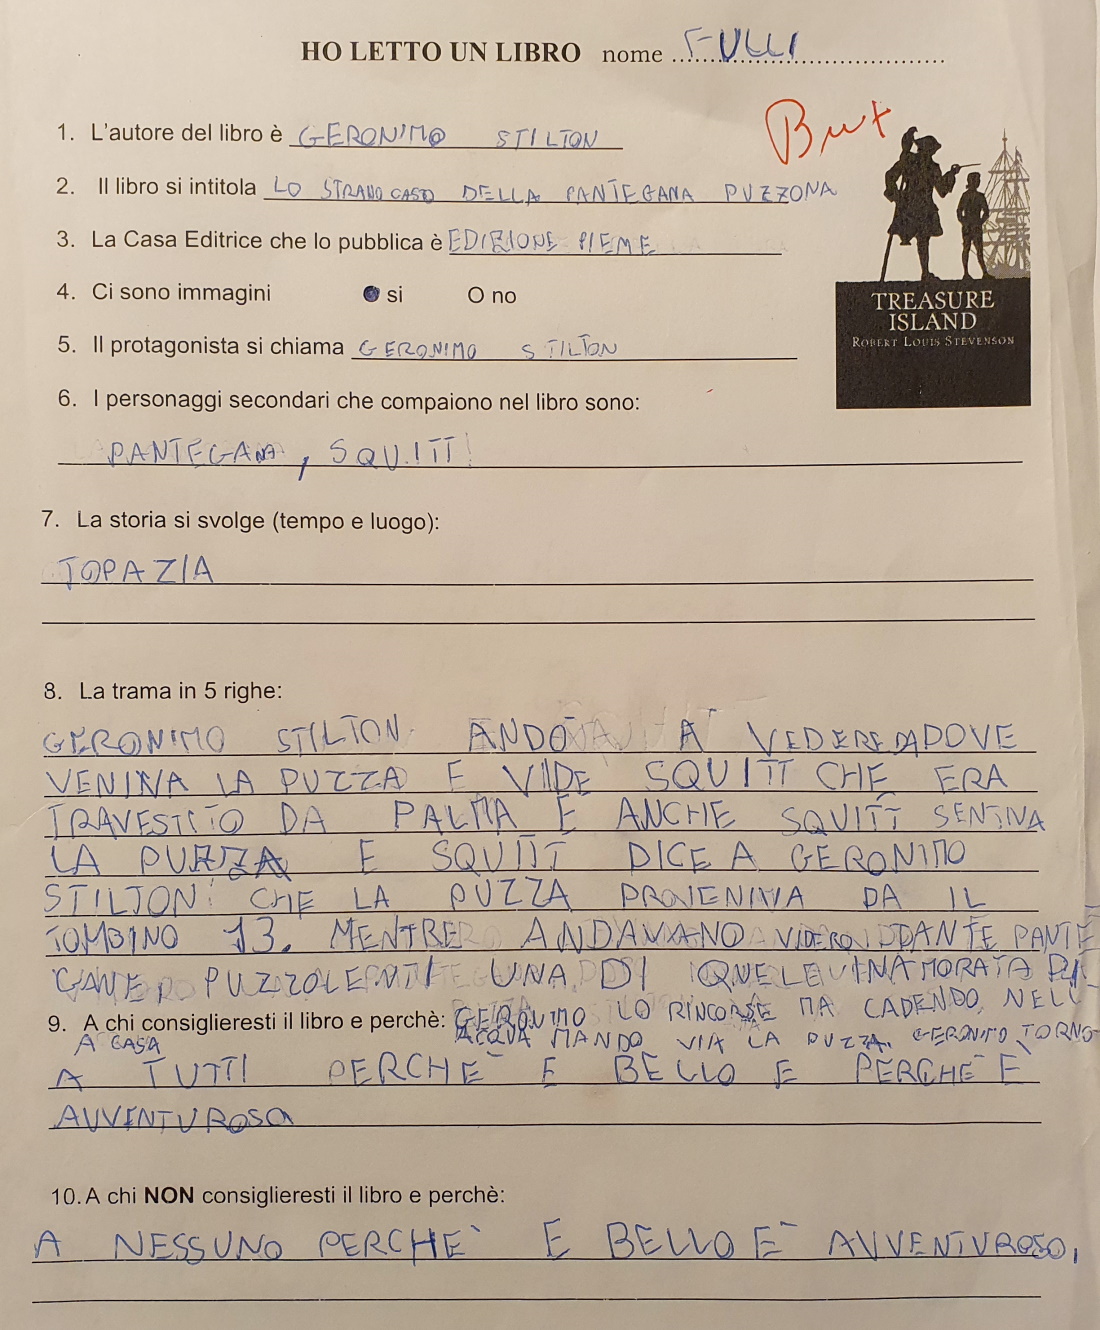 HO LETTO UN LIBRO nome FULLI
1. L'autore del libro è GERONIMO STILTON
2. Il libro si intitola LO STRANO CASO DELLA PANTEGANA PUZZONA
3. La Casa Editrice che lo pubblica è EDIZIONE PIEME
4. Ci sono immagini si O no
5. Il protagonista si chiama GERONIMO STILTON
TREASURE
ISLAND
ROBERT LOUIS STEVENSON
6. I personaggi secondari che compaiono nel libro sono:
PANTEGANA, SQUITT!
7. La storia si svolge (tempo e luogo):
TOPAZIA
8. La trama in 5 righe:
GERONIMO STILTON ANDÒ A VEDERE DA DOVE
VENIVA LA PUZZA E VIDE SQUITT CHE ERA
TRAVESTITO DA PALMA E ANCHE SQUITT SENTIVA
LA PUZZA E SQUITT DICE A GERONIMO
STILTON CHE LA PUZZA PROVENIVA DA IL
TOMBINO 13. MENTRE ANDAVANO VIDERO TANTE PANTE
GANE PUZZOLENTI UNA DI QUELE INAMORATA DI
9. A chi consiglieresti il libro e perchè: GERONIMO LO RINCORSE MA CADENDO NELL
A CASA ACQUA MANDO VIA LA PUZZA. GERONIMO TORNO
A TUTTI PERCHÈ È BELLO E PERCHÈ È
AVVENTUROSO
10. A chi NON consiglieresti il libro e perchè:
A NESSUNO PERCHE` E BELLO È AVVENTUROSO.